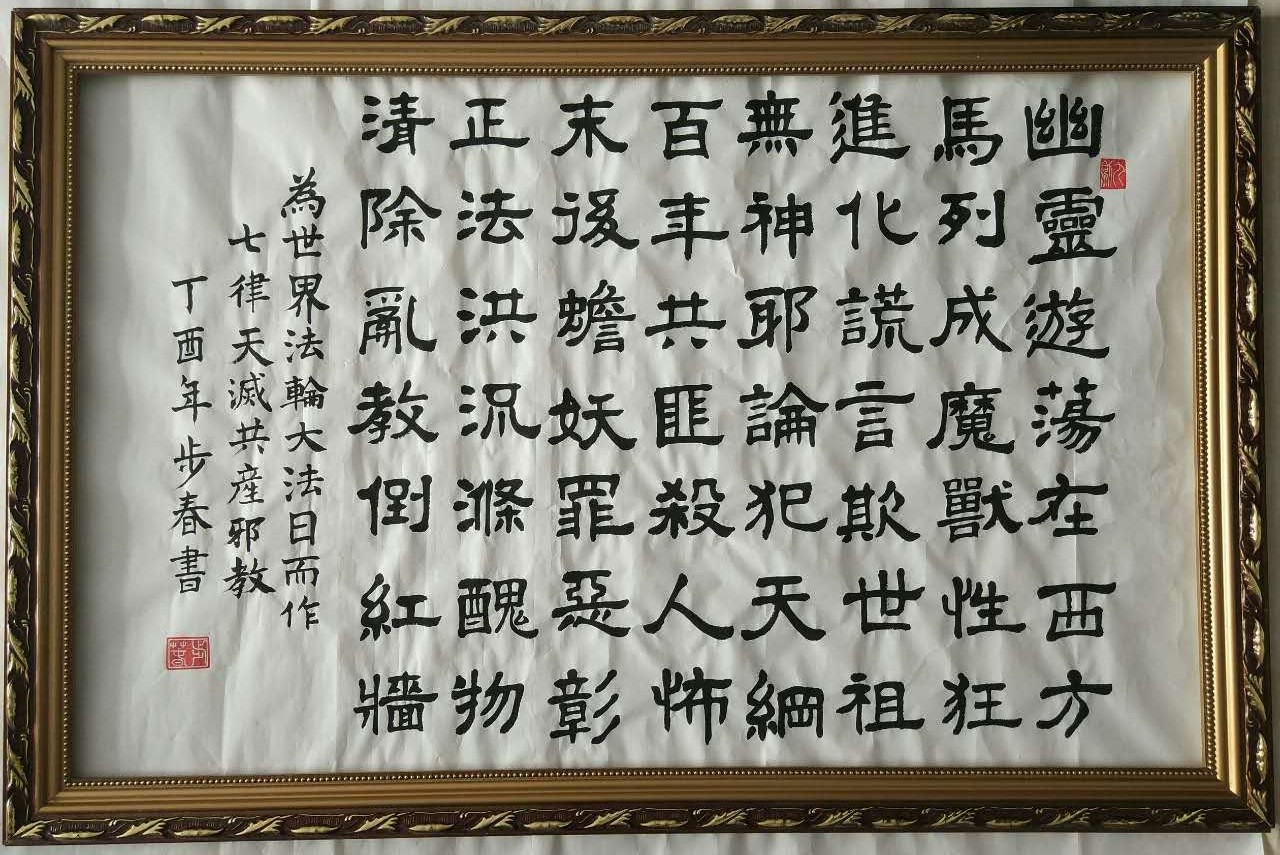 幽靈遊蕩在西方
馬列成魔獸性狂
進化謊言欺世祖
無神耶論犯天綱
百年共匪殺人怖
末後蟾妖罪惡彰
正法洪況滌醜物
清除亂教倒紅牆
為世界法輪大法日而作
七律天滅共産邪教
丁酉年步春書